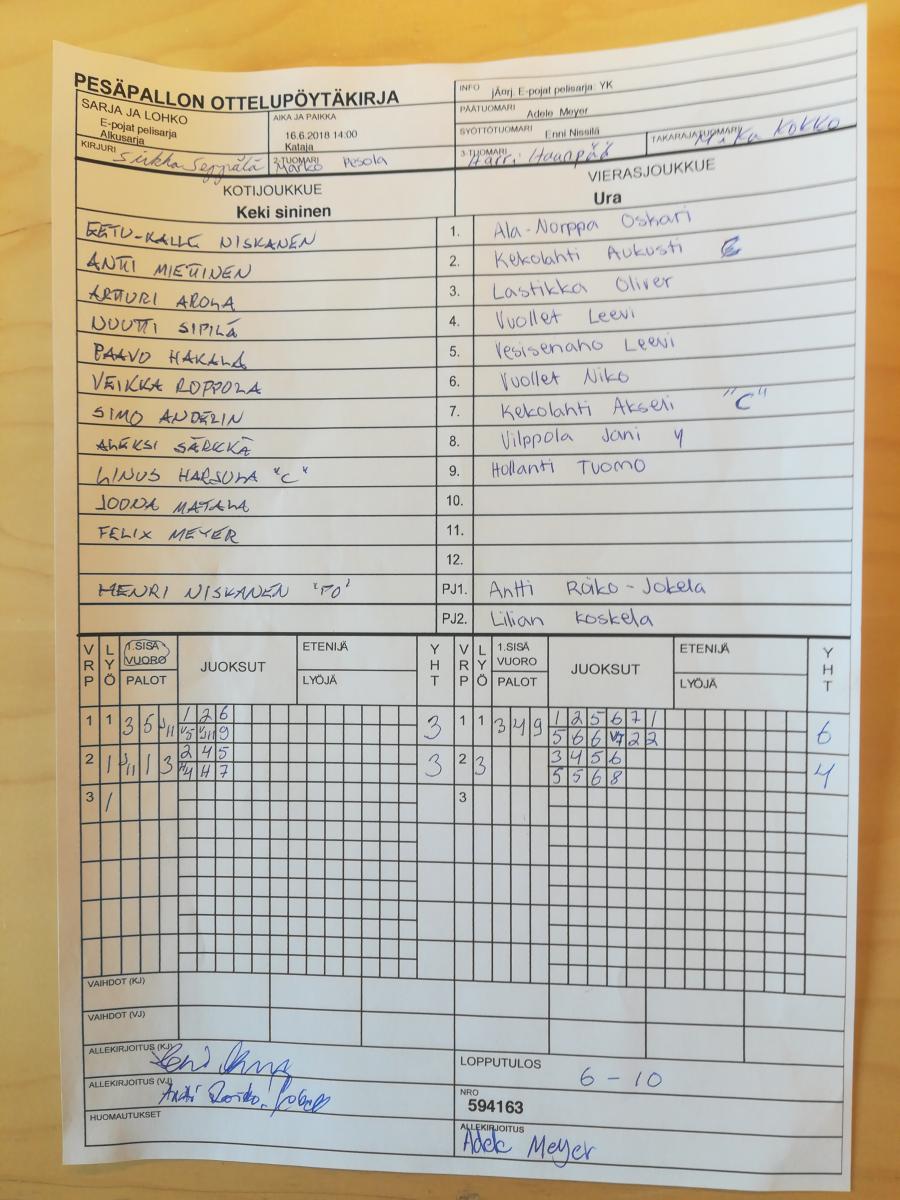 PESÄPALLON OTTELUPÖYTÄKIRJA
SARJA JA LOHKO
E-pojat pelisarja
Alkusarja
AIKA JA PAIKKA
16.6.2018 14:00
Kataja
INFO jÄorj. E-pojat pelisarja: YK
PÄÄTUOMARI
Adele Meyer
SYÖTTÖTUOMARI Enni Nissilä
KIRJURI Sirkka Seppälä
2-TUOMARI Marko Pesola
3-TUOMARI Harri Haanpää
TAKARAJATUOMARI Mika Kokko
KOTIJOUKKUE
Keki sininen
VIERASJOUKKUE
Ura
EETU-KALLE NISKANEN 1. Ala-Norppa Oskari
ANTTI MIETTINEN 2. Kekolahti Aukusti
ARTTURI AROLA 3. Lastikka Oliver
NUUTTI SIPILÄ 4. Vuollet Leevi
PAAVO HAKALA 5. Vesisenaho Leevi
VEIKKA ROPPOLA 6. Vuollet Niko
SIMO ANDELIN 7. Kekolahti Akseli "C"
ALEKSI SÄRKKÄ 8. Vilppola Jani
LINUS HARJULA "C" 9. Hollanti Tuomo
JOONA MATALA 10.
FELIX MEYER 11.
12.
HENRI NISKANEN "PO" PJ1. Antti Räiko-Jokela
PJ2. Lilian Koskela
VRP LYÖ 1.SISÄ VUORO PALOT JUOKSUT ETENIJÄ LYÖJÄ YHT VRP LYÖ 1.SISÄ VUORO PALOT JUOKSUT ETENIJÄ LYÖJÄ YHT
1 1 3 5 J11 1 2 6 3 1 1 3 4 9 1 2 5 6 7 1 6
V5 V11 9 5 6 6 V7 2 2
2 1 J11 1 3 2 4 5 3 2 3 3 4 5 6 4
H4 H 7 5 5 6 8
3 1 3
VAIHDOT (KJ)
VAIHDOT (VJ)
ALLEKIRJOITUS (KJ)
ALLEKIRJOITUS (VJ)
HUOMAUTUKSET
LOPPUTULOS
6 - 10
NRO
594163
ALLEKIRJOITUS
Adele Meyer